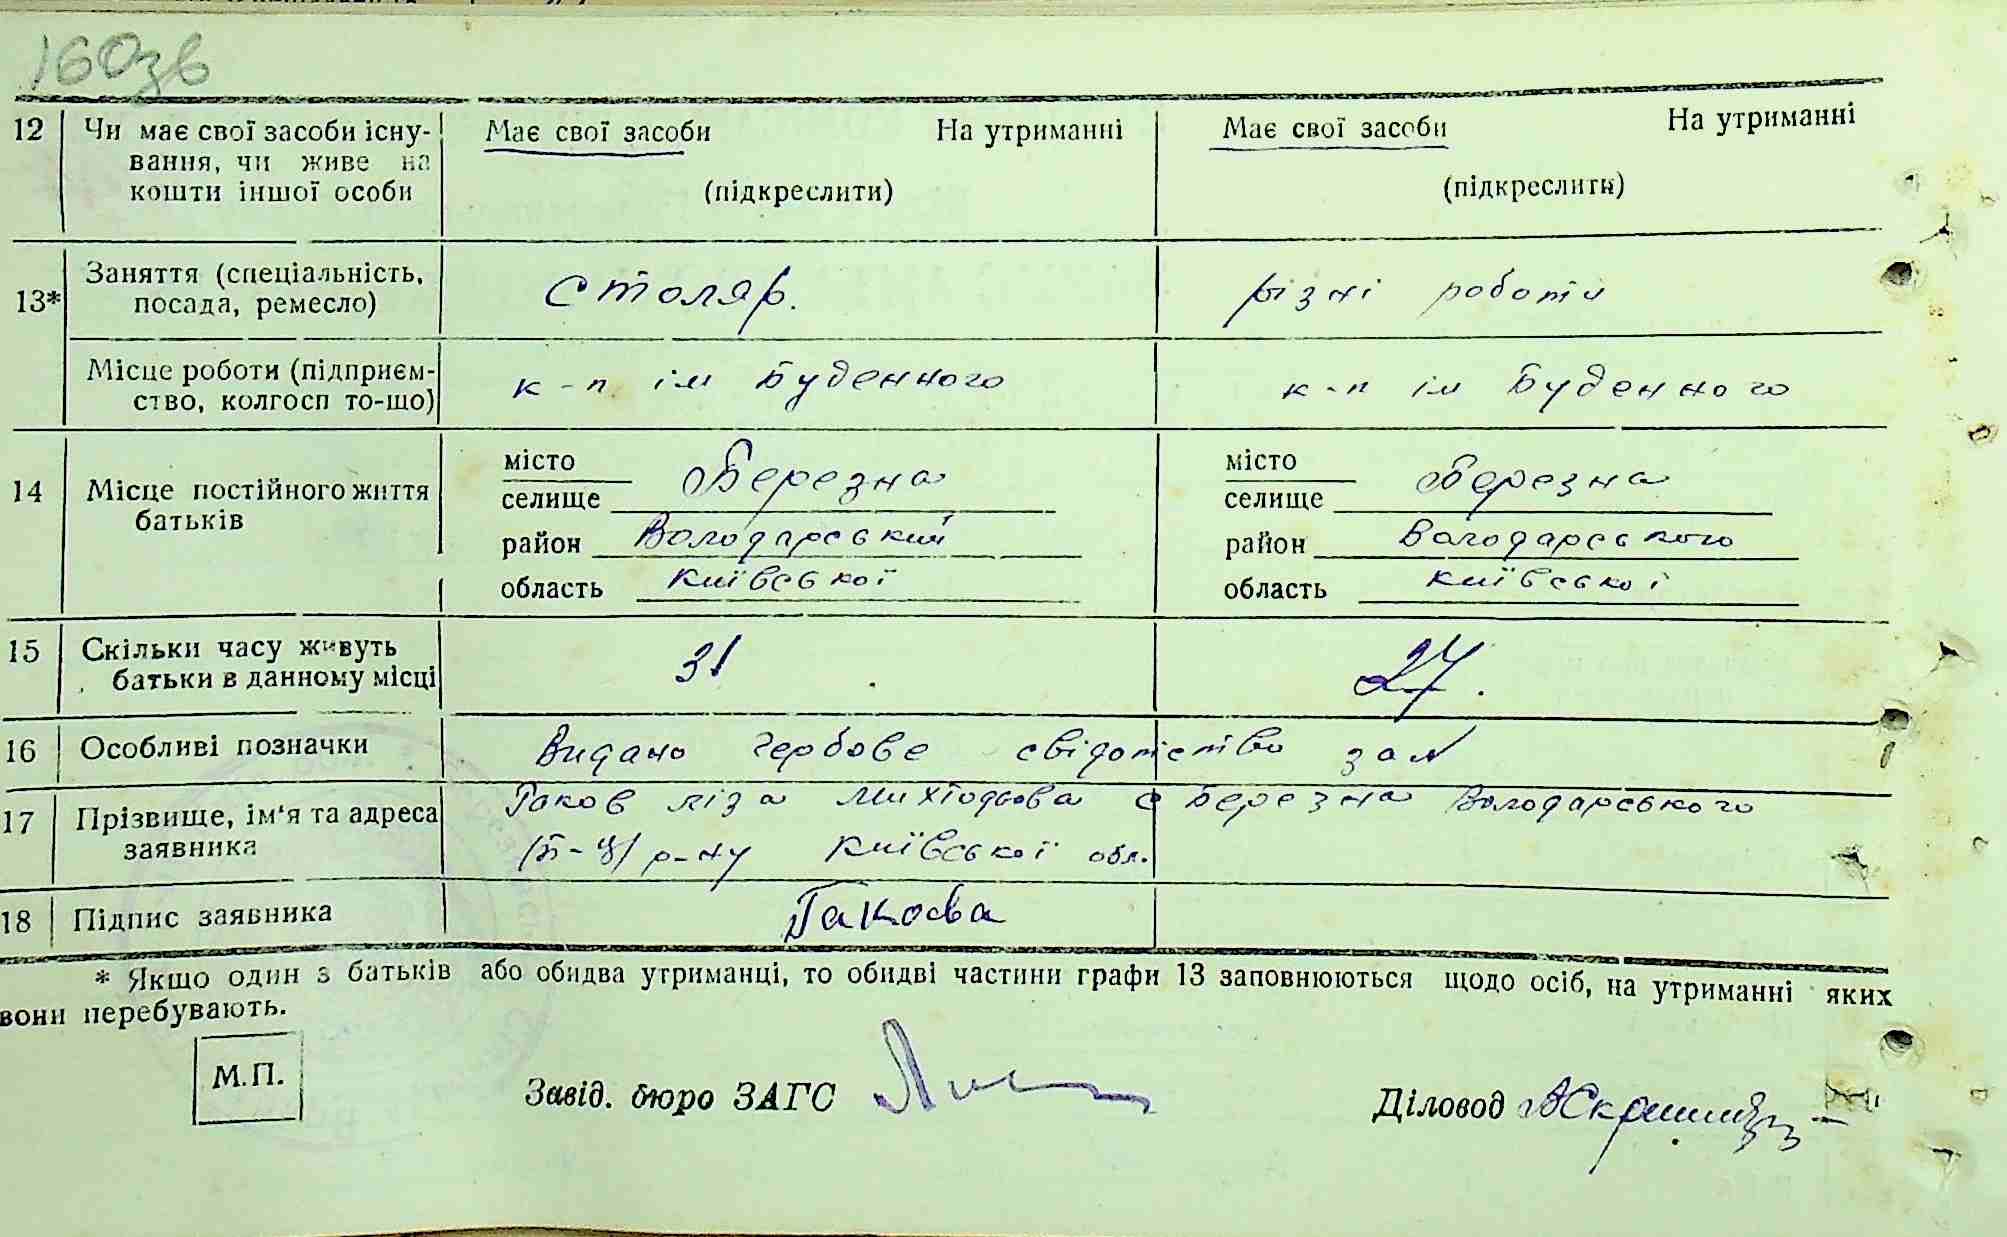 160зв
12 Чи має свої засоби існу- Має свої засоби На утриманні Має свої засоби На утриманні
вання, чи живе на
кошти іншої особи (підкреслити) (підкреслити)
13* Заняття (спеціальність, столяр. різні роботи
посада, ремесло)
Місце роботи (підприєм- к-п ім Буденного к-п ім Буденного
ство, колгосп то-що)
14 Місце постійного життя місто Березна місто Березна
батьків селище селище
район Володарський район Володарського
область Київської область Київської
15 Скільки часу живуть 31 27.
батьки в данному місці
16 Особливі позначки Видано гербове свідотство за №
17 Прізвище, ім'я та адреса ліза с Березна Володарського
заявника (Б-Ц) р-ну Київської обл.
18 Підпис заявника
* Якщо один з батьків або обидва утриманці, то обидві частини графи 13 заповнюються щодо осіб, на утриманні яких
вони перебувають.
М.П. Завід. бюро ЗАГС Діловод